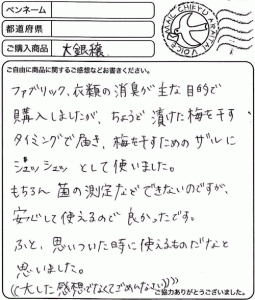 ペンネーム
都道府県
ご購入商品 大銀穣
MAIL CHIEYU ARATAI VOICE
ご自由に商品に関するご感想などお書きください。
ファブリック、衣類の消臭が主な目的で
購入しましたが、ちょうど漬けた梅を干す
タイミングで届き、梅を干すためのザルに
シュッシュッとして使いました。
もちろん菌の測定などできないのですが、
安心して使えるので良かったです。
ふと、思いついた時に使えるものだなと
思いました。
((大した感想でなくてごめんなさい))
ご協力ありがとうございました。